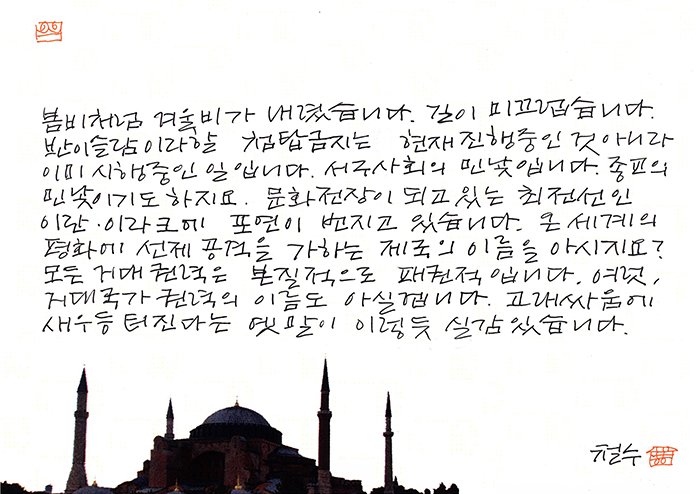 봄비처럼 겨울비가 내렸습니다. 길이 미끄럽습니다.
반이슬람이라할 첨탑금지는 현재진행중인 것 아니라
이미 시행중인 일입니다. 서구사회의 민낯입니다. 종교의
민낯이기도 하지요. 문화전장이 되고있는 최전선인
이란·이라크에 포연이 번지고 있습니다. 온 세계의
평화에 선제 공격을 가하는 제국의 이름을 아시지요?
모든 거대 권력은 본질적으로 패권적입니다. 여럿,
거대국가 권력의 이름도 아실겝니다. 고래싸움에
새우등 터진다는 옛말이 이렇듯 실감있습니다.
철수